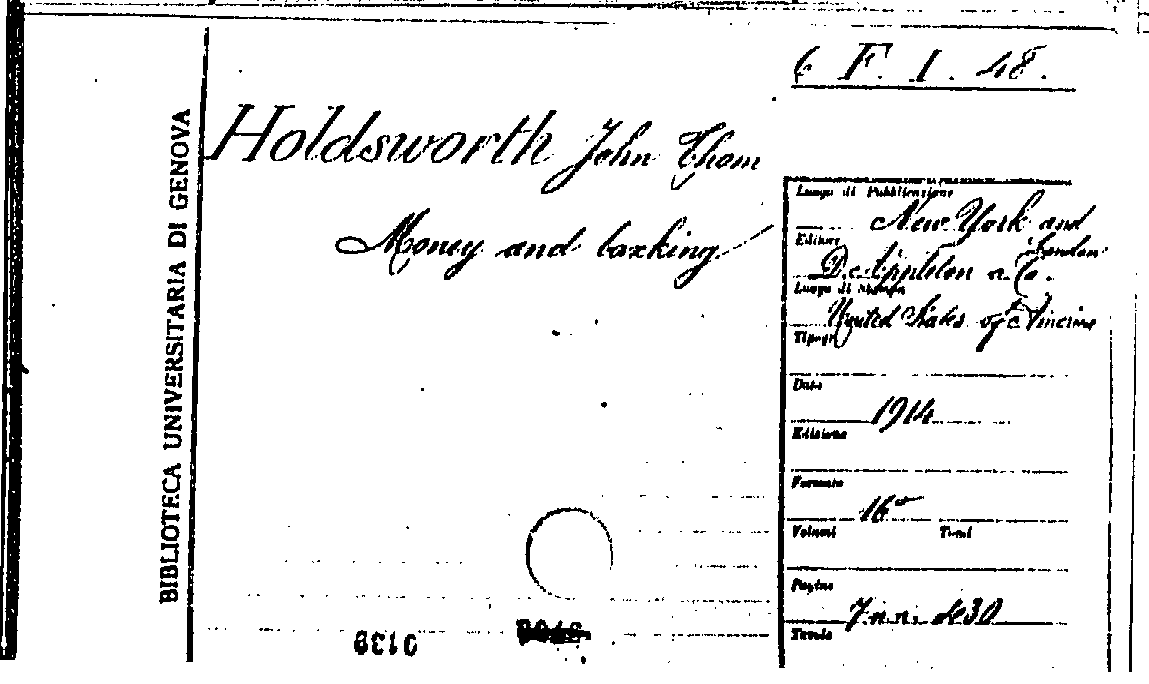 6 F. I. 48.
BIBLIOTECA UNIVERSITARIA DI GENOVA
Holdsworth John Thom
Money and banking
Luogo di Pubblicazione
New York and London
Editore
D. Appleton a. Co.
Luogo di Stampa
United States of America
Tipogr
Data
1914
Edizione
Formato
16°
Volumi Tomi
Pagine
7 n.n. 430
Tavole
0139